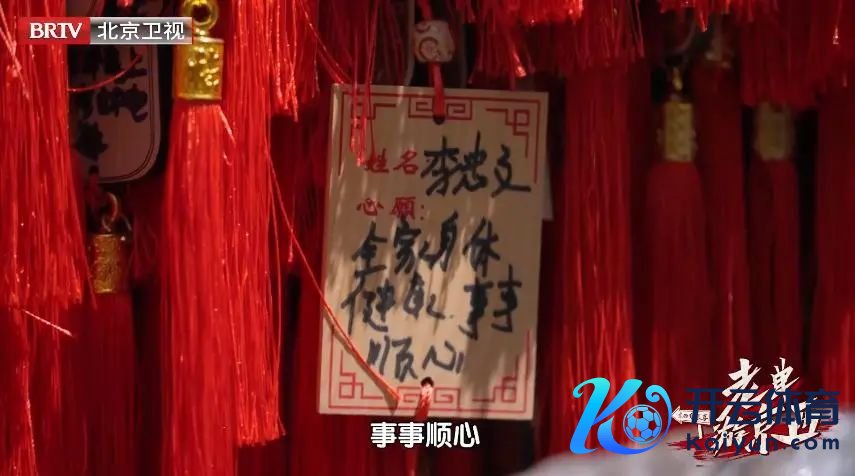 BRTV 北京卫视
姓名 李忠文
心愿:
全家身休
健康.事事
顺心
事事顺心
开云体育
Kaiyun.com